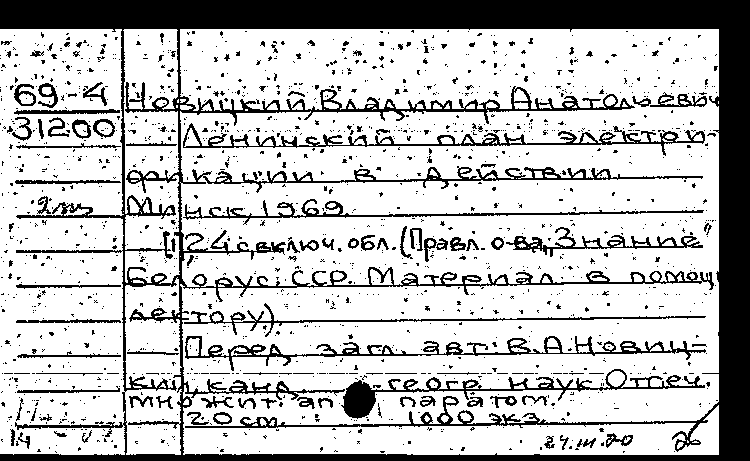 69-4 Новицкий, Владимир Анатольевич
31200 Ленинский план электри-
фикации в действии.
Минск, 1969.
24 с, включ. обл. (Правл. о-ва „Знание"
Белорус. ССР. Материал в помощь
лектору).
Перед загл. авт: В.А. Новиц-
кий, канд. геогр. наук. Отпеч.
множит. аппаратом.
20 см. 1000 экз.
24.III.70